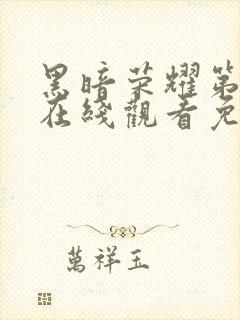 黑暗荣耀第
在綫觀看免
萬祥玉